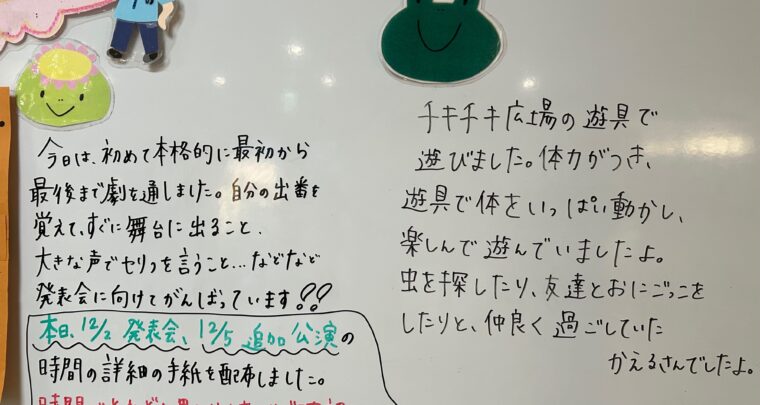 今日は、初めて本格的に最初から
最後まで劇を通しました。自分の出番を
覚えて、すぐに舞台に出ること、
大きな声でセリフを言うこと…などなど
発表会に向けてがんばっています!!
本日、12/2 発表会、12/5 追加公演の
時間の詳細の手紙を配布しました。
チキチキ広場の遊具で
遊びました。体力がつき、
遊具で体をいっぱい動かし、
楽しんで遊んでいましたよ。
虫を探したり、友達とおにごっこを
したりと、仲良く過ごしていた
かえるさんでしたよ。